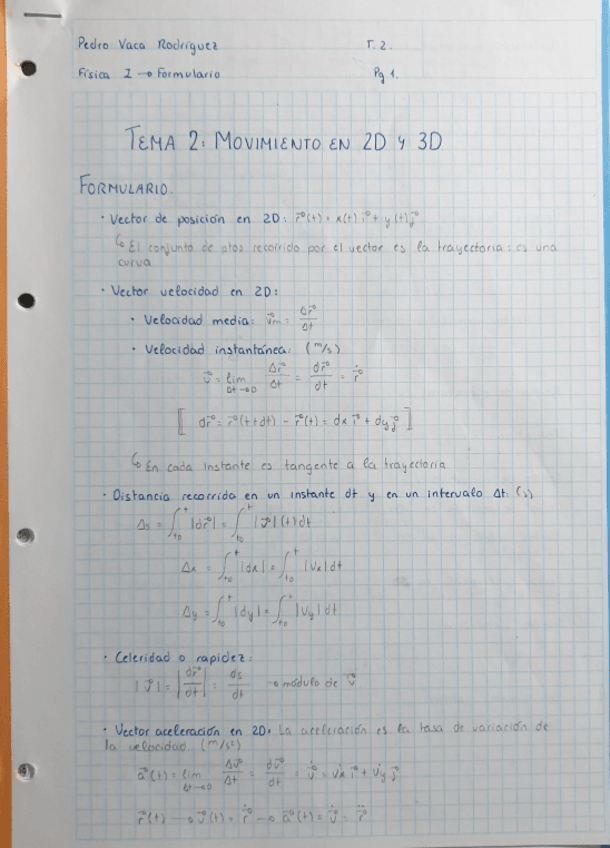 Pedro Vaca Rodríguez T. 2.
Física I → Formulario Pg 1.
TEMA 2: MOVIMIENTO EN 2D Y 3D
FORMULARIO.
· Vector de posición en 2D: r⃗(t) = x(t) i⃗ + y(t) j⃗
↳ El conjunto de ptos recorrido por el vector es la trayectoria: es una
curva
· Vector velocidad en 2D:
· Velocidad media: v⃗m = Δr⃗/Δt
· Velocidad instantánea: (m/s)
v⃗ = lim Δt→0 Δr⃗/Δt = dr⃗/dt = ṙ⃗
[ dr⃗ = r⃗(t+dt) - r⃗(t) = dx i⃗ + dy j⃗ ]
↳ En cada instante es tangente a la trayectoria
· Distancia recorrida en un instante dt y en un intervalo Δt: (s)
Δs = ∫t0^t |dr⃗| = ∫t0^t |v⃗|(t) dt
Δx = ∫t0^t |dx| = ∫t0^t |vx| dt
Δy = ∫t0^t |dy| = ∫t0^t |vy| dt
· Celeridad o rapidez:
|v⃗| = |dr⃗/dt| = ds/dt → módulo de v⃗
· Vector aceleración en 2D: La aceleración es la tasa de variación de
la velocidad. (m/s²)
a⃗(t) = lim Δt→0 Δv⃗/Δt = dv⃗/dt = v̇⃗ = v̇x i⃗ + v̇y j⃗
r⃗(t) → v⃗(t) = ṙ⃗ → a⃗(t) = v̇⃗ = r̈⃗